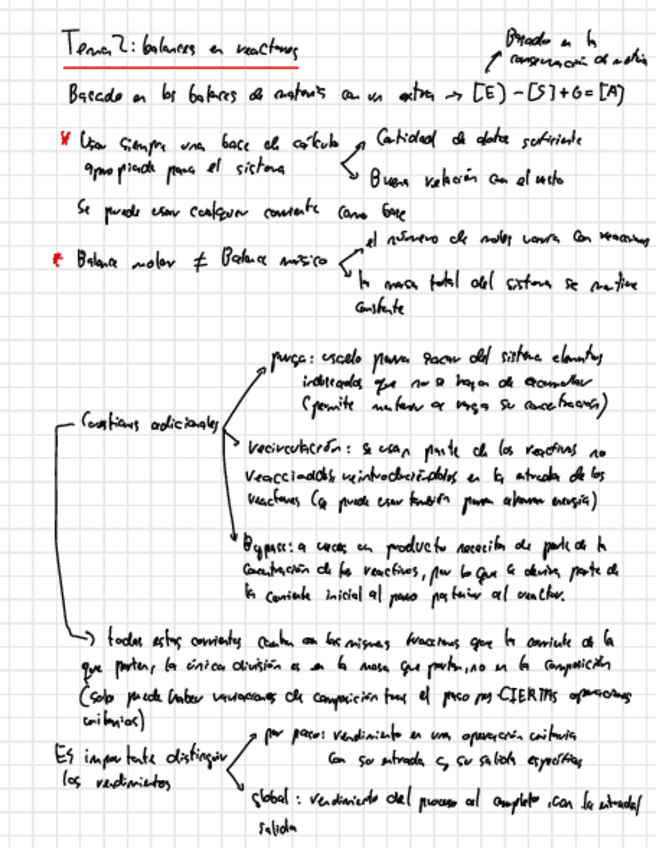 Tema 2: balances en reactores
Basado en la
conservación de materia
Basado en los balances de materia con un extra → [E] - [S] + G = [A]
* Usar siempre una base de cálculo
apropiada para el sistema
Cantidad de datos suficiente
Buena relación con el resto
Se puede usar cualquier corriente como base
* Balance molar ≠ Balance másico
el número de moles varía con reacciones
la masa total del sistema se mantiene
constante
Cuestiones adicionales
purga: usado para sacar del sistema elementos
indeseados que no se hayan de acumular
(permite mantener a raya su concentración)
recirculación: se usan parte de los reactivos no
reacciados reintroduciéndolos en la entrada de los
reactores (se puede usar también para ahorrar energía)
Bypass: a veces un producto necesita de parte de la
concentración de los reactivos, por lo que se deriva parte de
la corriente inicial al paso posterior al reactor.
→ todas estas corrientes cuentan con las mismas fracciones que la corriente de la
que parten, la única división es en la masa que portan, no en la composición
(solo puede haber variaciones de composición tras el paso por CIERTAS operaciones
unitarias)
Es importante distinguir
los rendimientos
por paso: rendimiento en una operación unitaria
con su entrada y su salida específicas
global: rendimiento del proceso al completo, con la entrada/
salida